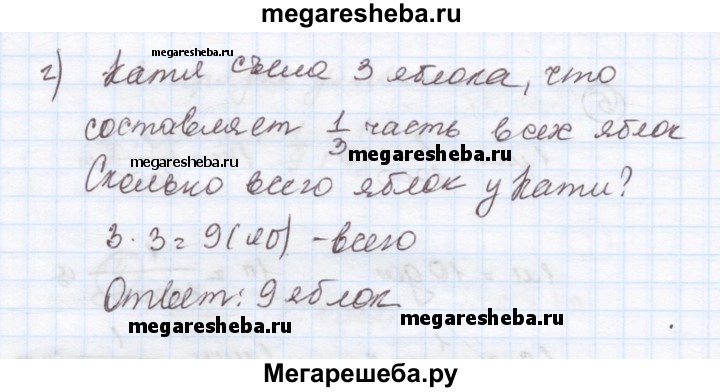 megaresheba.ru
megaresheba.ru
г) Катя съела 3 яблока, что
составляет 1/3 часть всех яблок
megaresheba.ru
megaresheba.ru
Сколько всего яблок у Кати?
3 · 3 = 9 (яб) - всего
Ответ: 9 яблок
megaresheba.ru
megaresheba.ru
Мегарешеба.ру